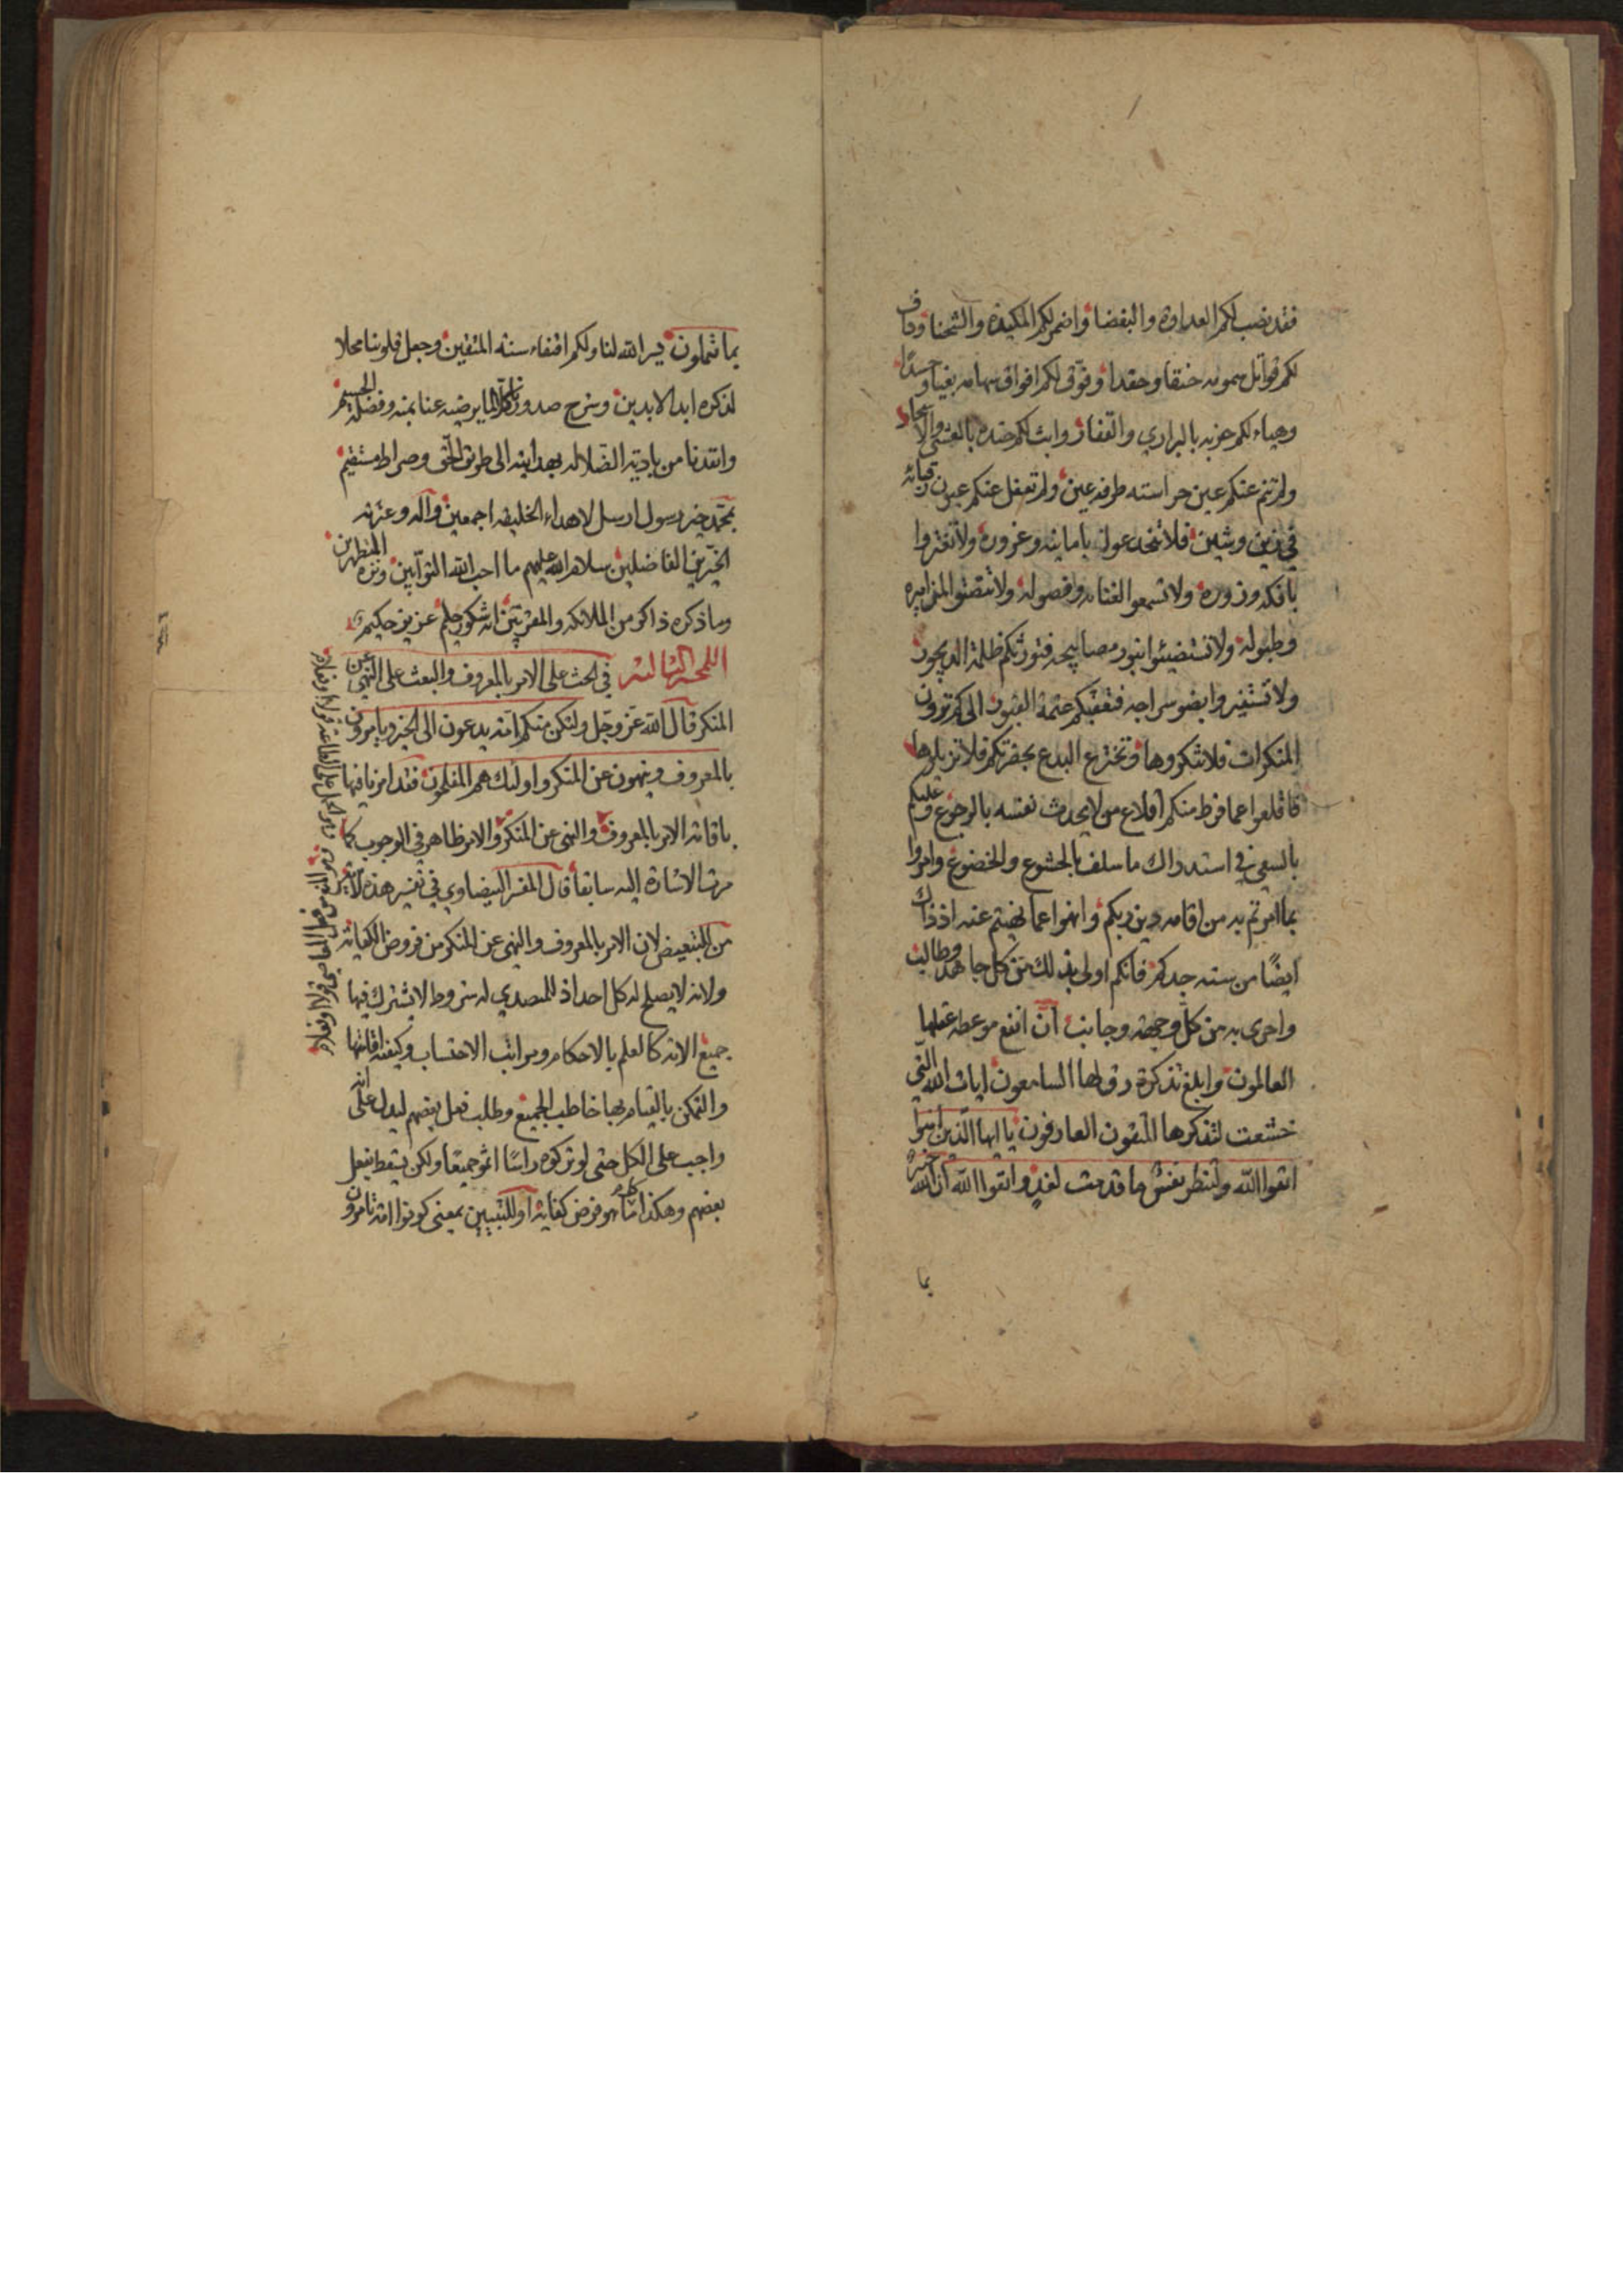 فقد نصب لكم العداوة والبغضا واضمر لكم المكيدة والشحنا وداف
لكم قواتل سمومه حنقا وحقدا وفوّق لكم افواق سهامه بغيا وحسدًا
وهياء لكم حزبه بالبراري والقفار وابث لكم جنده بالعشي والابكار
ولم تنم عنكم عين حراسته طرفة عين ولم تغفل عنكم عيون رقبائه
في زين وشين فلا تنخدعوا بامانيه وغروره ولا تغتروا
بافكه وزوره ولا تسمعوا لغنائه وفصوله ولا تنصتوا لمزاميره
وطبوله ولا تستضيئوا بنور مصابيحه فتورثكم ظلمة الديجور
ولا تستنيروا بضو سراجه فتعقبكم عتمة القبور الى كم ترون
المنكرات فلا تنكروها وتخترع البدع بحضرتكم فلا تزيلوها
فاقلعوا عما فرط منكم اقلاع من لا يحدث نفسه بالرجوع وعليكم
بالسعي في استدراك ما سلف بالخشوع والخضوع وامروا
بما امرتم به من اقامه دين ربكم وانهوا عما نهيتم عنه اذ ذاك
ايضًا من سنه جدكم فانكم اولى بذلك من كل جاهد وطالب
واحرى به من كل وجهه وجانب ان انفع موعظه عقلها
العالمون وابلغ تذكرة رق لها السامعون ايات الله التي
خشعت لتذكرها المتقون العارفون يا ايها الذين امنوا
اتقوا الله ولتنظر نفس ما قدمت لغد واتقوا الله ان الله خبير
بما
بما تعملون يسر الله لنا ولكم اقتفاء سنة المتقين وجعل قلوبنا محلا
لذكره ابد الابدين وشرح صدورنا لما يرضيه عنا بمنه وفضله الجسيم
وانقذنا من بادية الضلاله بهدايته الى طريق الحق وصراط مستقيم
بمحمد خير رسول ارسل لاهداء الخليقه اجمعين وآله وعترته
الخيرين الفاضلين سلام الله عليهم ما احب الله التوابين ونزه المتطهرين
وما ذكره ذاكر من الملائكه والمقربين انه شكور حليم عزيز حكيم
اللمحة الثالثة في الحث على الامر بالمعروف والبعث على النهي عن
المنكر قال الله عز وجل ولتكن منكم امة يدعون الى الخير ويامرون
بالمعروف وينهون عن المنكر واولئك هم المفلحون فقد امرنا فيها
باقامة الامر بالمعروف والنهي عن المنكر والامر ظاهر في الوجوب كما
مرت الاشارة اليه سابقا قال المفسر البيضاوي في تفسير هذه الآية
من للتبعيض لان الامر بالمعروف والنهي عن المنكر من فروض الكفاية
ولانه لا يصلح له كل احد اذ للمتصدي له شروط لا يشترك فيها
جميع الامة كالعلم بالاحكام ومراتب الاحتساب وكيفية اقامتها
والتمكن بالقيام بها خاطب الجميع وطلب فعل بعضهم ليدل على انه
واجب على الكل حتى لو تركوه راسًا اثموا جميعًا ولكن يسقط بفعل
بعضهم وهكذا كلما هو فرض كفاية او للتبيين بمعنى كونوا امة تامرون